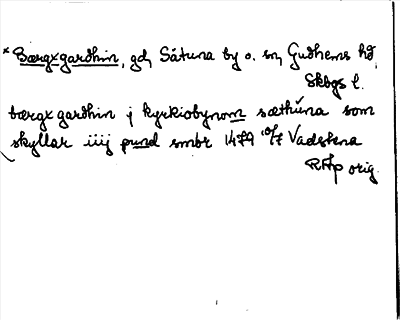 × Bærgx gardhin, gd, Såtuna by o. sn, Gudhems hd,
Skbgs l.
bærgx gardhin j kyrkiobynom sæthuna som
skyllar iiij pund smör 1479 10/7 Vadstena
RAp orig.